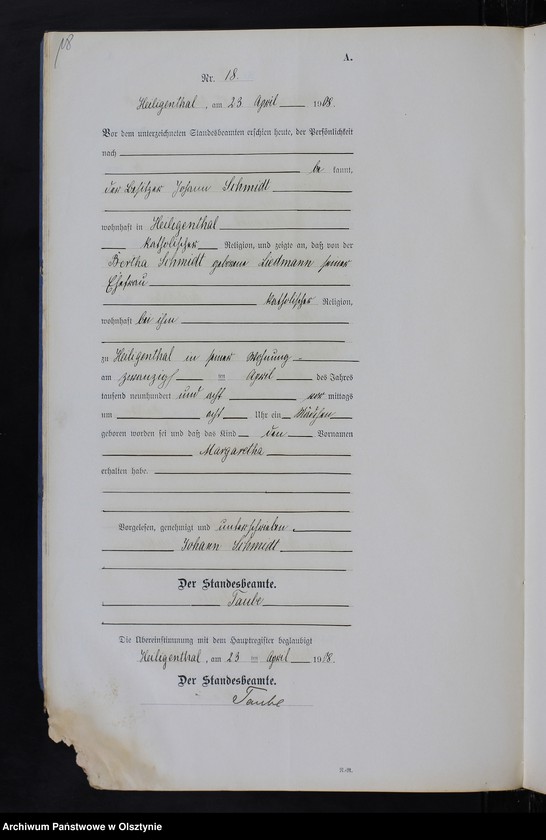 A.
Nr. 18.
Heiligenthal, am 23 April 1908.
Vor dem unterzeichneten Standesbeamten erschien heute, der Persönlichkeit
nach
be kannt,
der Besitzer Johann Schmidt
wohnhaft in Heiligenthal
katholischer Religion, und zeigte an, daß von der
Bertha Schmidt geborene Liedmann seiner
Ehefrau
katholischer Religion,
wohnhaft bei ihm
zu Heiligenthal in seiner Wohnung
am zwanzigsten April des Jahres
tausend neunhundert und acht vor mittags
um acht Uhr ein Mädchen
geboren worden sei und daß das Kind den Vornamen
Margaretha
erhalten habe.
Vorgelesen, genehmigt und unterschrieben.
Johann Schmidt
Der Standesbeamte.
Taube
Die Übereinstimmung mit dem Hauptregister beglaubigt
Heiligenthal, am 23 April 1908.
Der Standesbeamte.
Taube
Archiwum Państwowe w Olsztynie